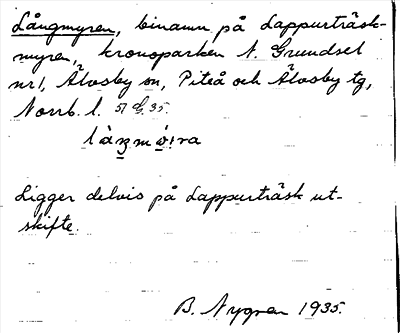 Långmyren, binamn på Lappurträsk-
myren, kronoparken N. Grundsel
nr 1, Älvsby sn, Piteå och Älvsby tg,
Norrb. l. 57 35.
Ligger delvis på Lappurträsk ut-
skifte.
B. Nygren 1935.